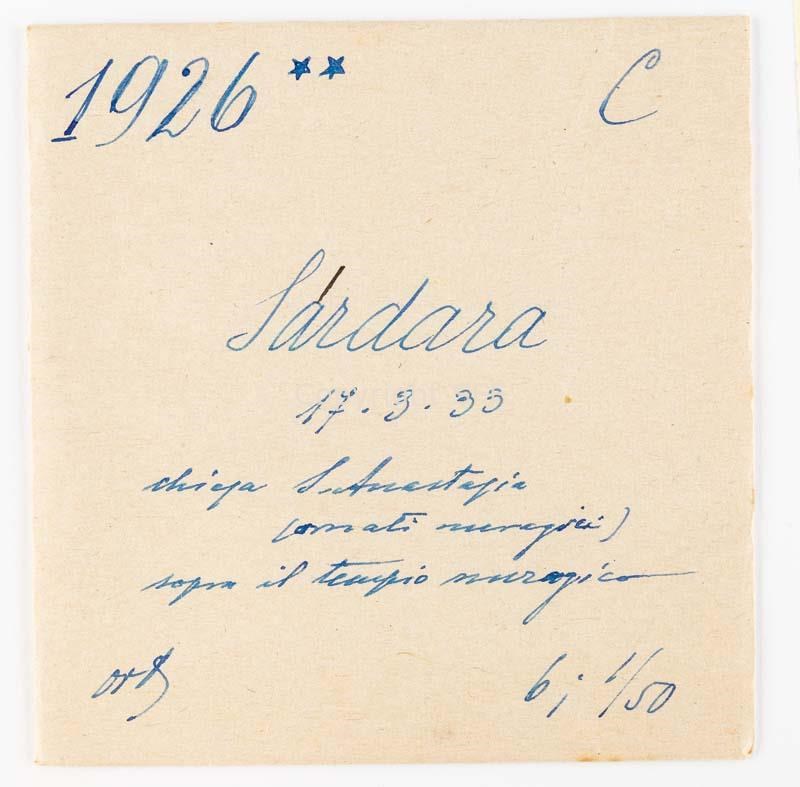 1926 ★★ C
Sárdara
17.3.33
chiesa S. Anastasia
(ornati nuragici)
sopra il tempio nuragico
6; 1/50